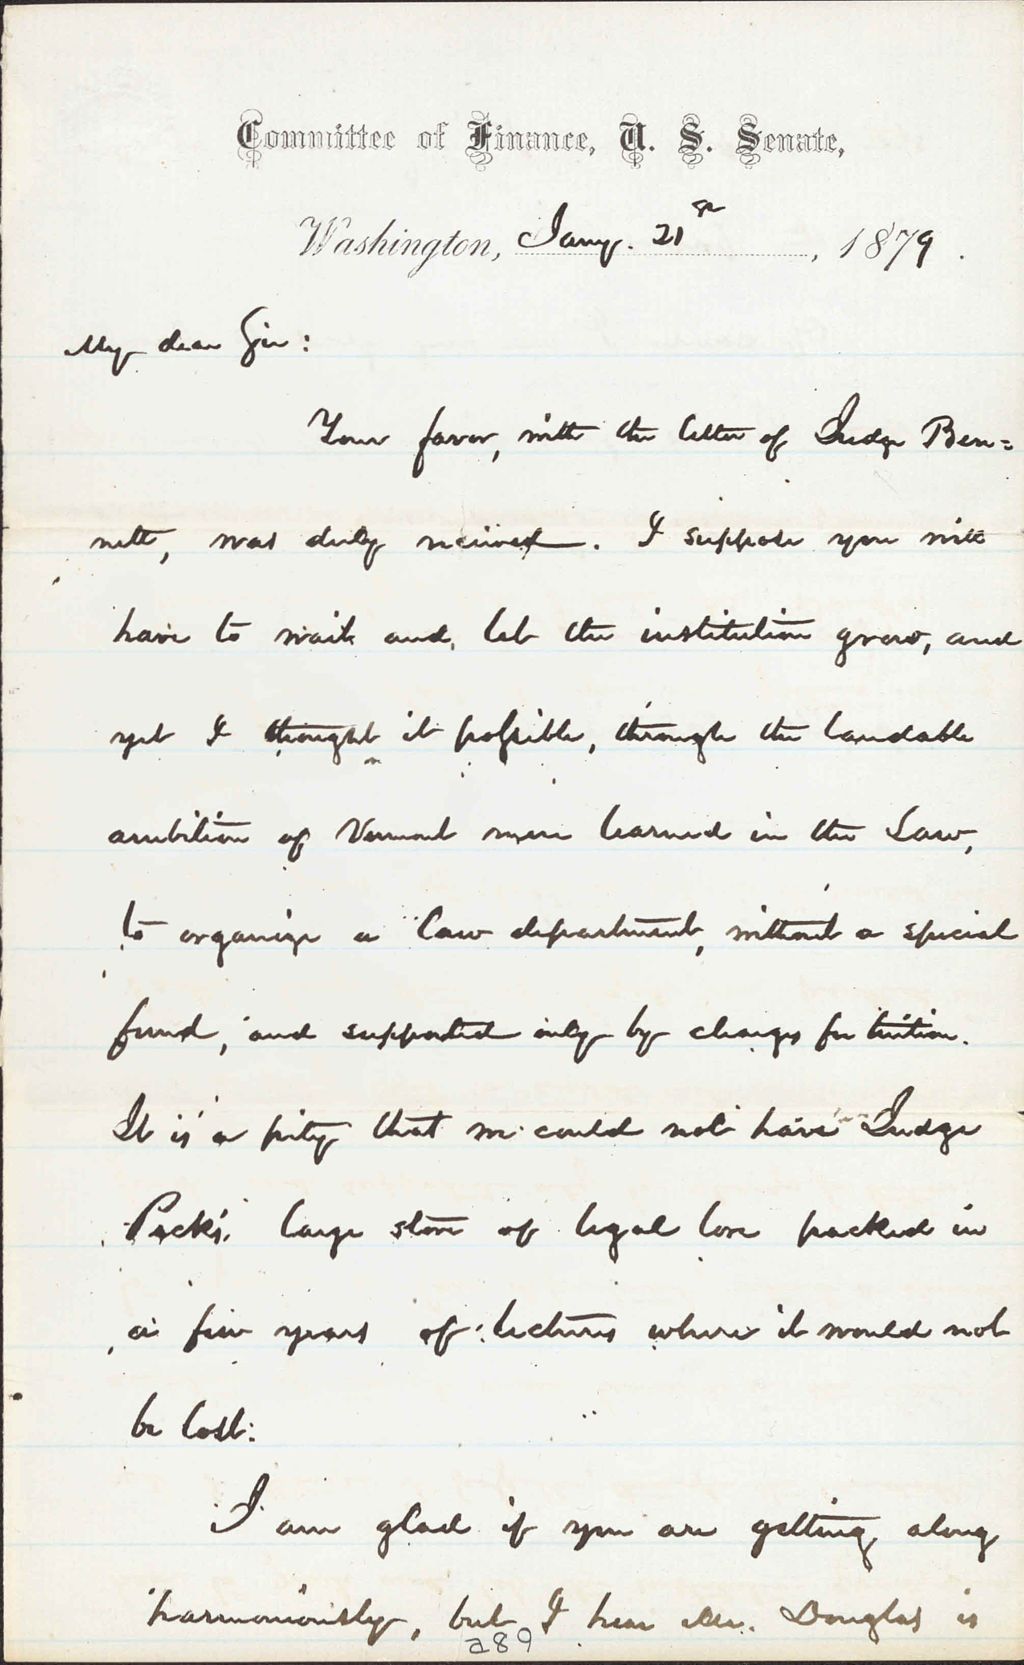 Committee of Finance, U. S. Senate,
Washington, Jany. 21st, 1879.
My dear Sir:
Your favor, with the letter of Judge Ben=
nett, was duly received. I suppose you will
have to wait and let the institution grow, and
yet I thought it possible, through the laudable
ambition of Vermont men learned in the Law,
to organize a Law department, without a special
fund, and supported only by charges for tuition.
It is a pity that we could not have Judge
Peck's large store of legal lore packed in
a few years of lectures where it would not
be lost.
I am glad if you are getting along
harmoniously, but I hear Mr. Douglas is
a89